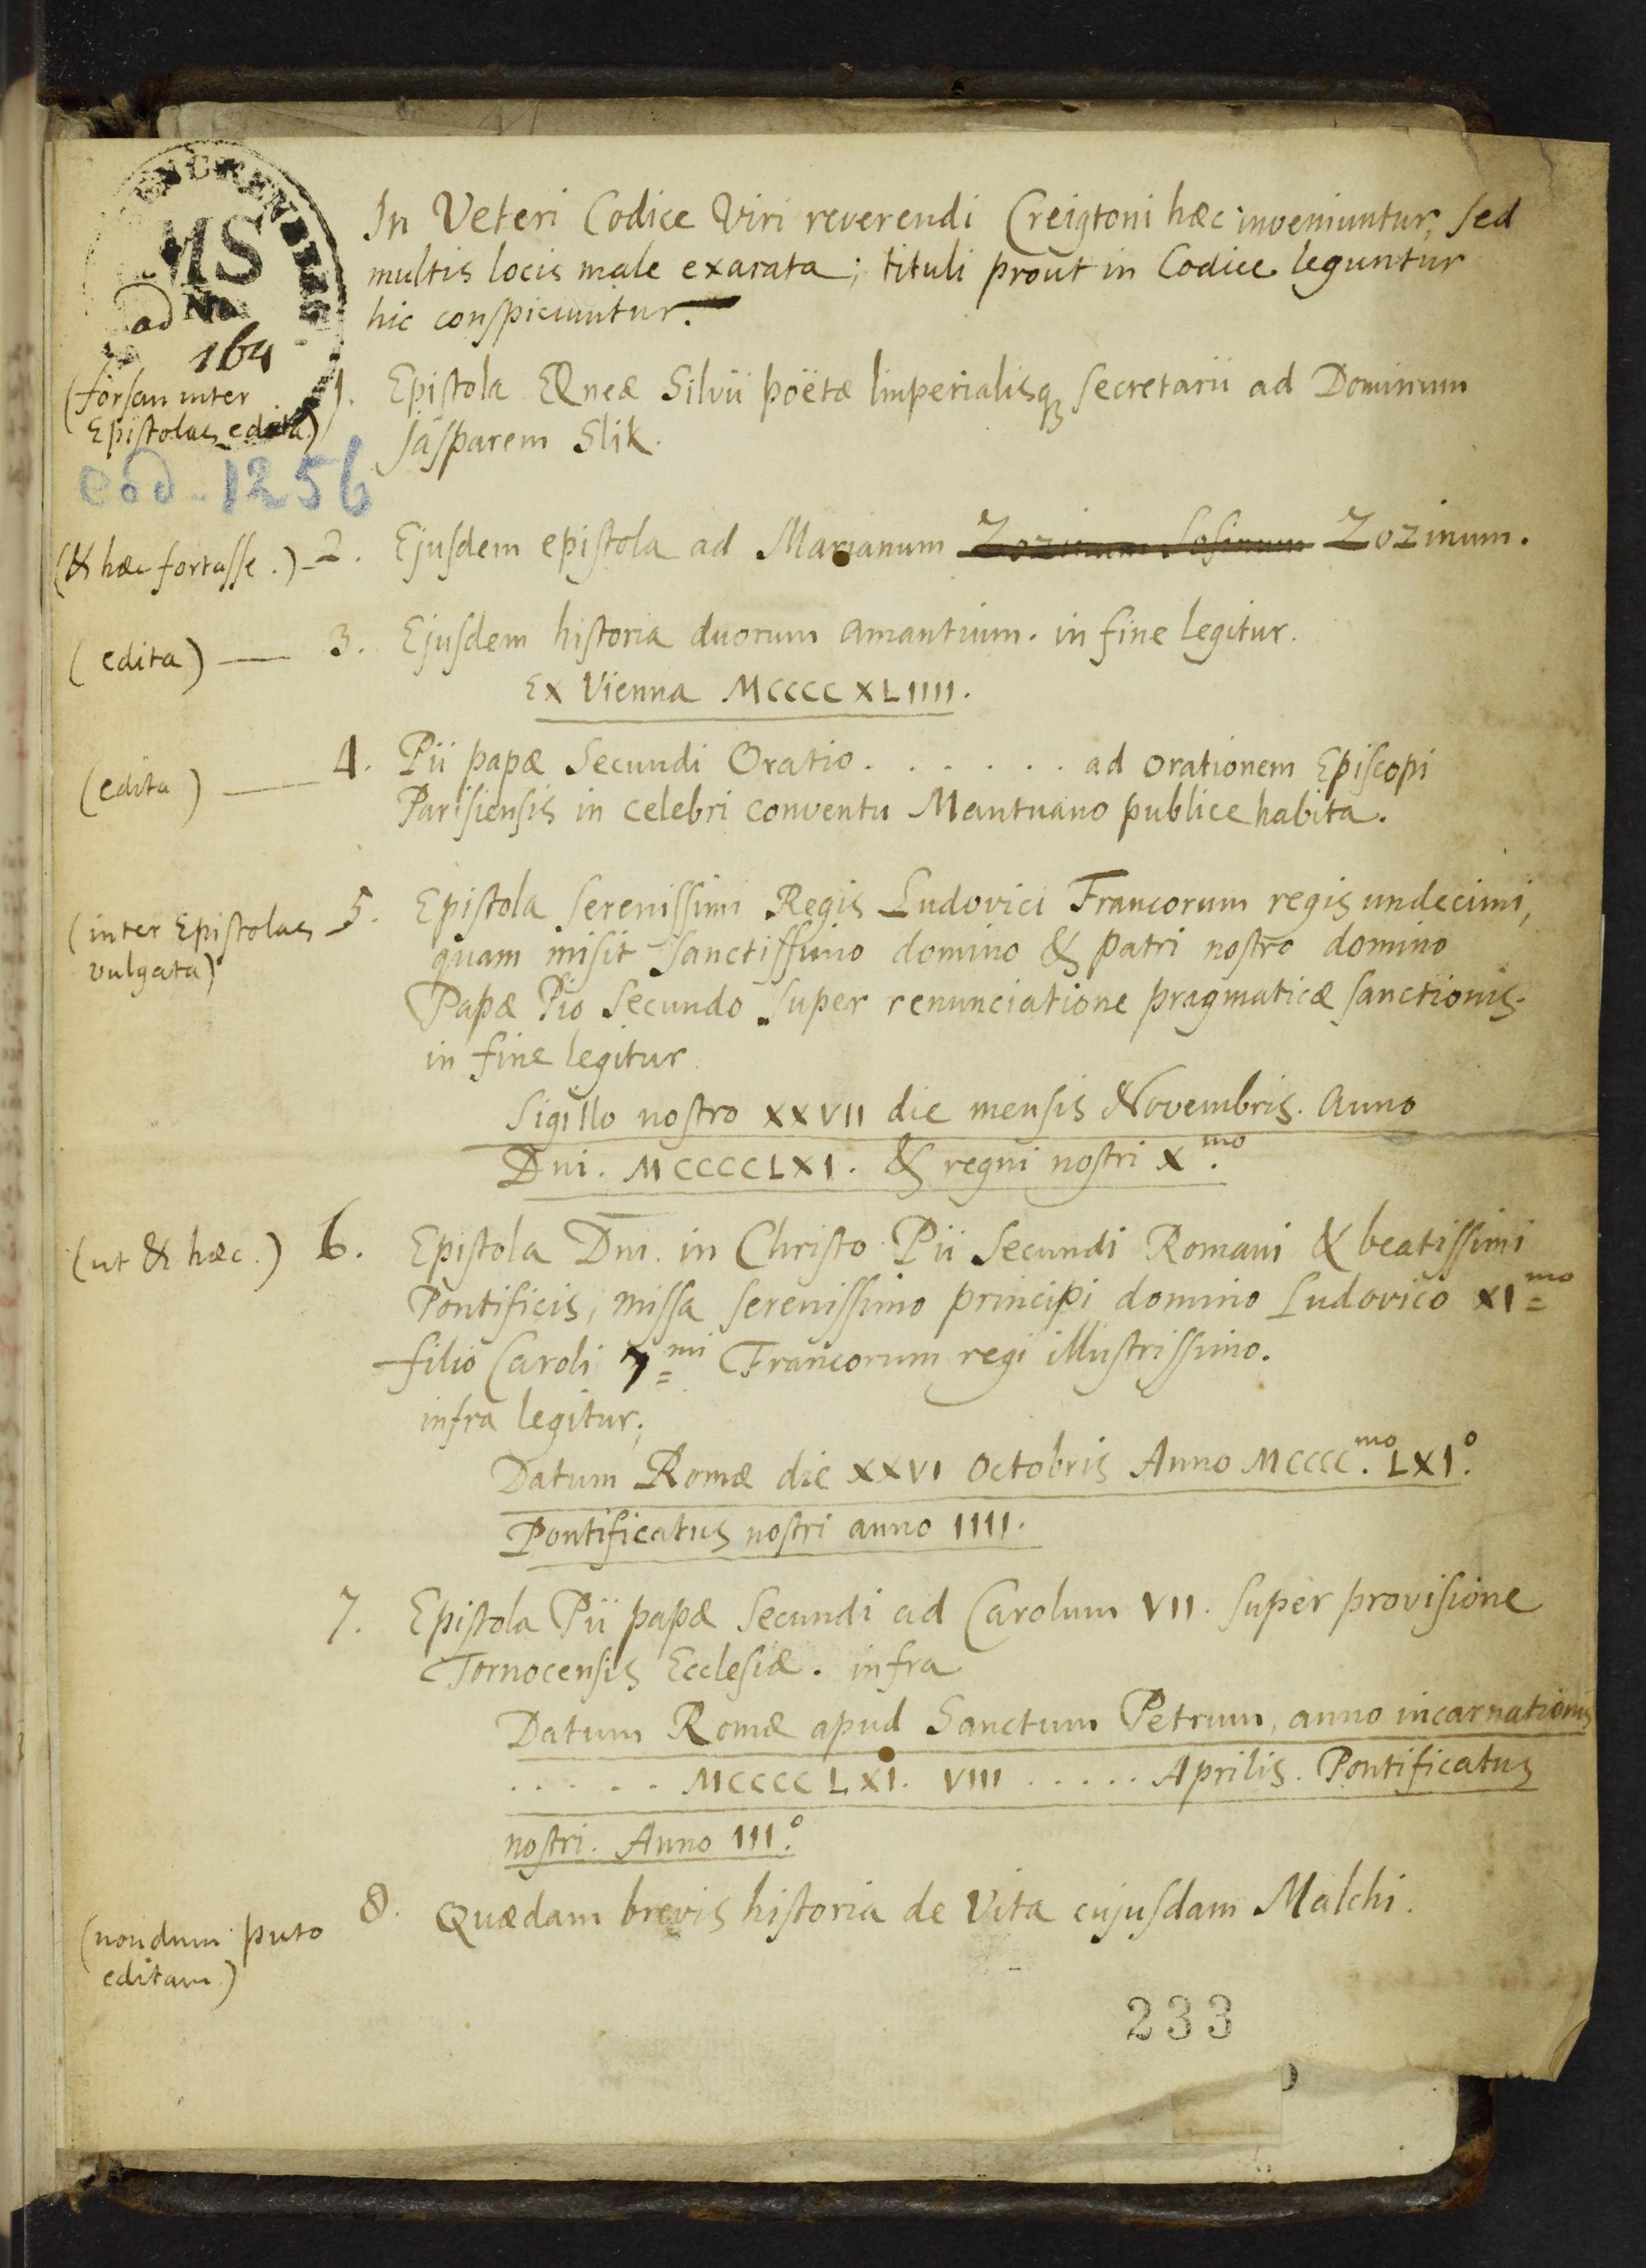 MS
ad No
164
In Veteri Codice Viri reverendi Creigtoni hæc inveniuntur, sed
multis locis male exarata; tituli prout in Codice leguntur
hic conspiciuntur.
(forsan inter
Epistolas edita)
1. Epistola Æneæ Silvii poëtæ limperialisqꝫ secretarii ad Dominum
Jasparem Slik.
cod. 1256
(& hæc fortasse.) - 2. Ejusdem epistola ad Marianum Zozinum Sosinum Zozinum.
(edita) — 3. Ejusdem historia duorum amantium. in fine legitur.
Ex Vienna MCCCCXLIIII.
(edita) — 4. Pii papæ Secundi Oratio . . . . . . ad orationem Episcopi
Parisiensis in celebri conventu Mantuano publice habita.
(inter Epistolas
vulgata)
5. Epistola serenissimi Regis Ludovici Francorum regis undecimi,
quam misit sanctissimo domino & patri nostro domino
Papæ Pio Secundo super renunciatione pragmaticæ sanctionis.
in fine legitur
Sigillo nostro XXVII die mensis Novembris. Anno
Dni. MCCCCLXI. & regni nostri X.mo
(ut & hæc.) 6. Epistola Dni. in Christo Pii Secundi Romani & beatissimi
Pontificis, missa serenissimo principi domino Ludovico XI=mo
filio Caroli 7=mi Francorum regi illustrissimo.
infra legitur;
Datum Romæ die XXVI Octobris Anno MCCCC.mo LXI.o
Pontificatus nostri anno IIII.
7. Epistola Pii papæ Secundi ad Carolum VII. super provisione
Tornocensis Ecclesiæ. infra
Datum Romæ apud Sanctum Petrum, anno incarnationis
. . . . . MCCCCLXI. VIII . . . . . Aprilis. Pontificatus
nostri. Anno III.o
(nondum puto
editam)
8. Quædam brevis historia de Vita cujusdam Malchi.
233